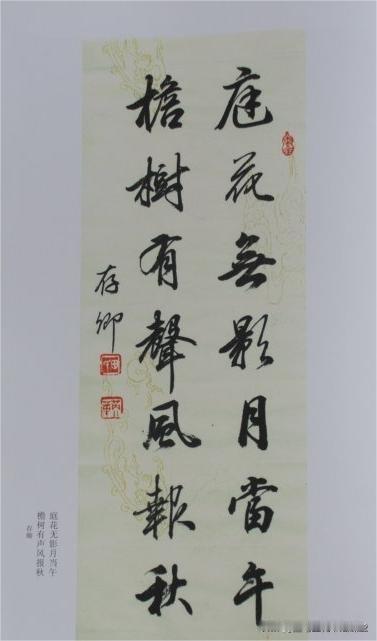 庭花無影月當午
檐樹有聲風報秋
存卿
庭花无影月当午
檐树有声风报秋
存卿